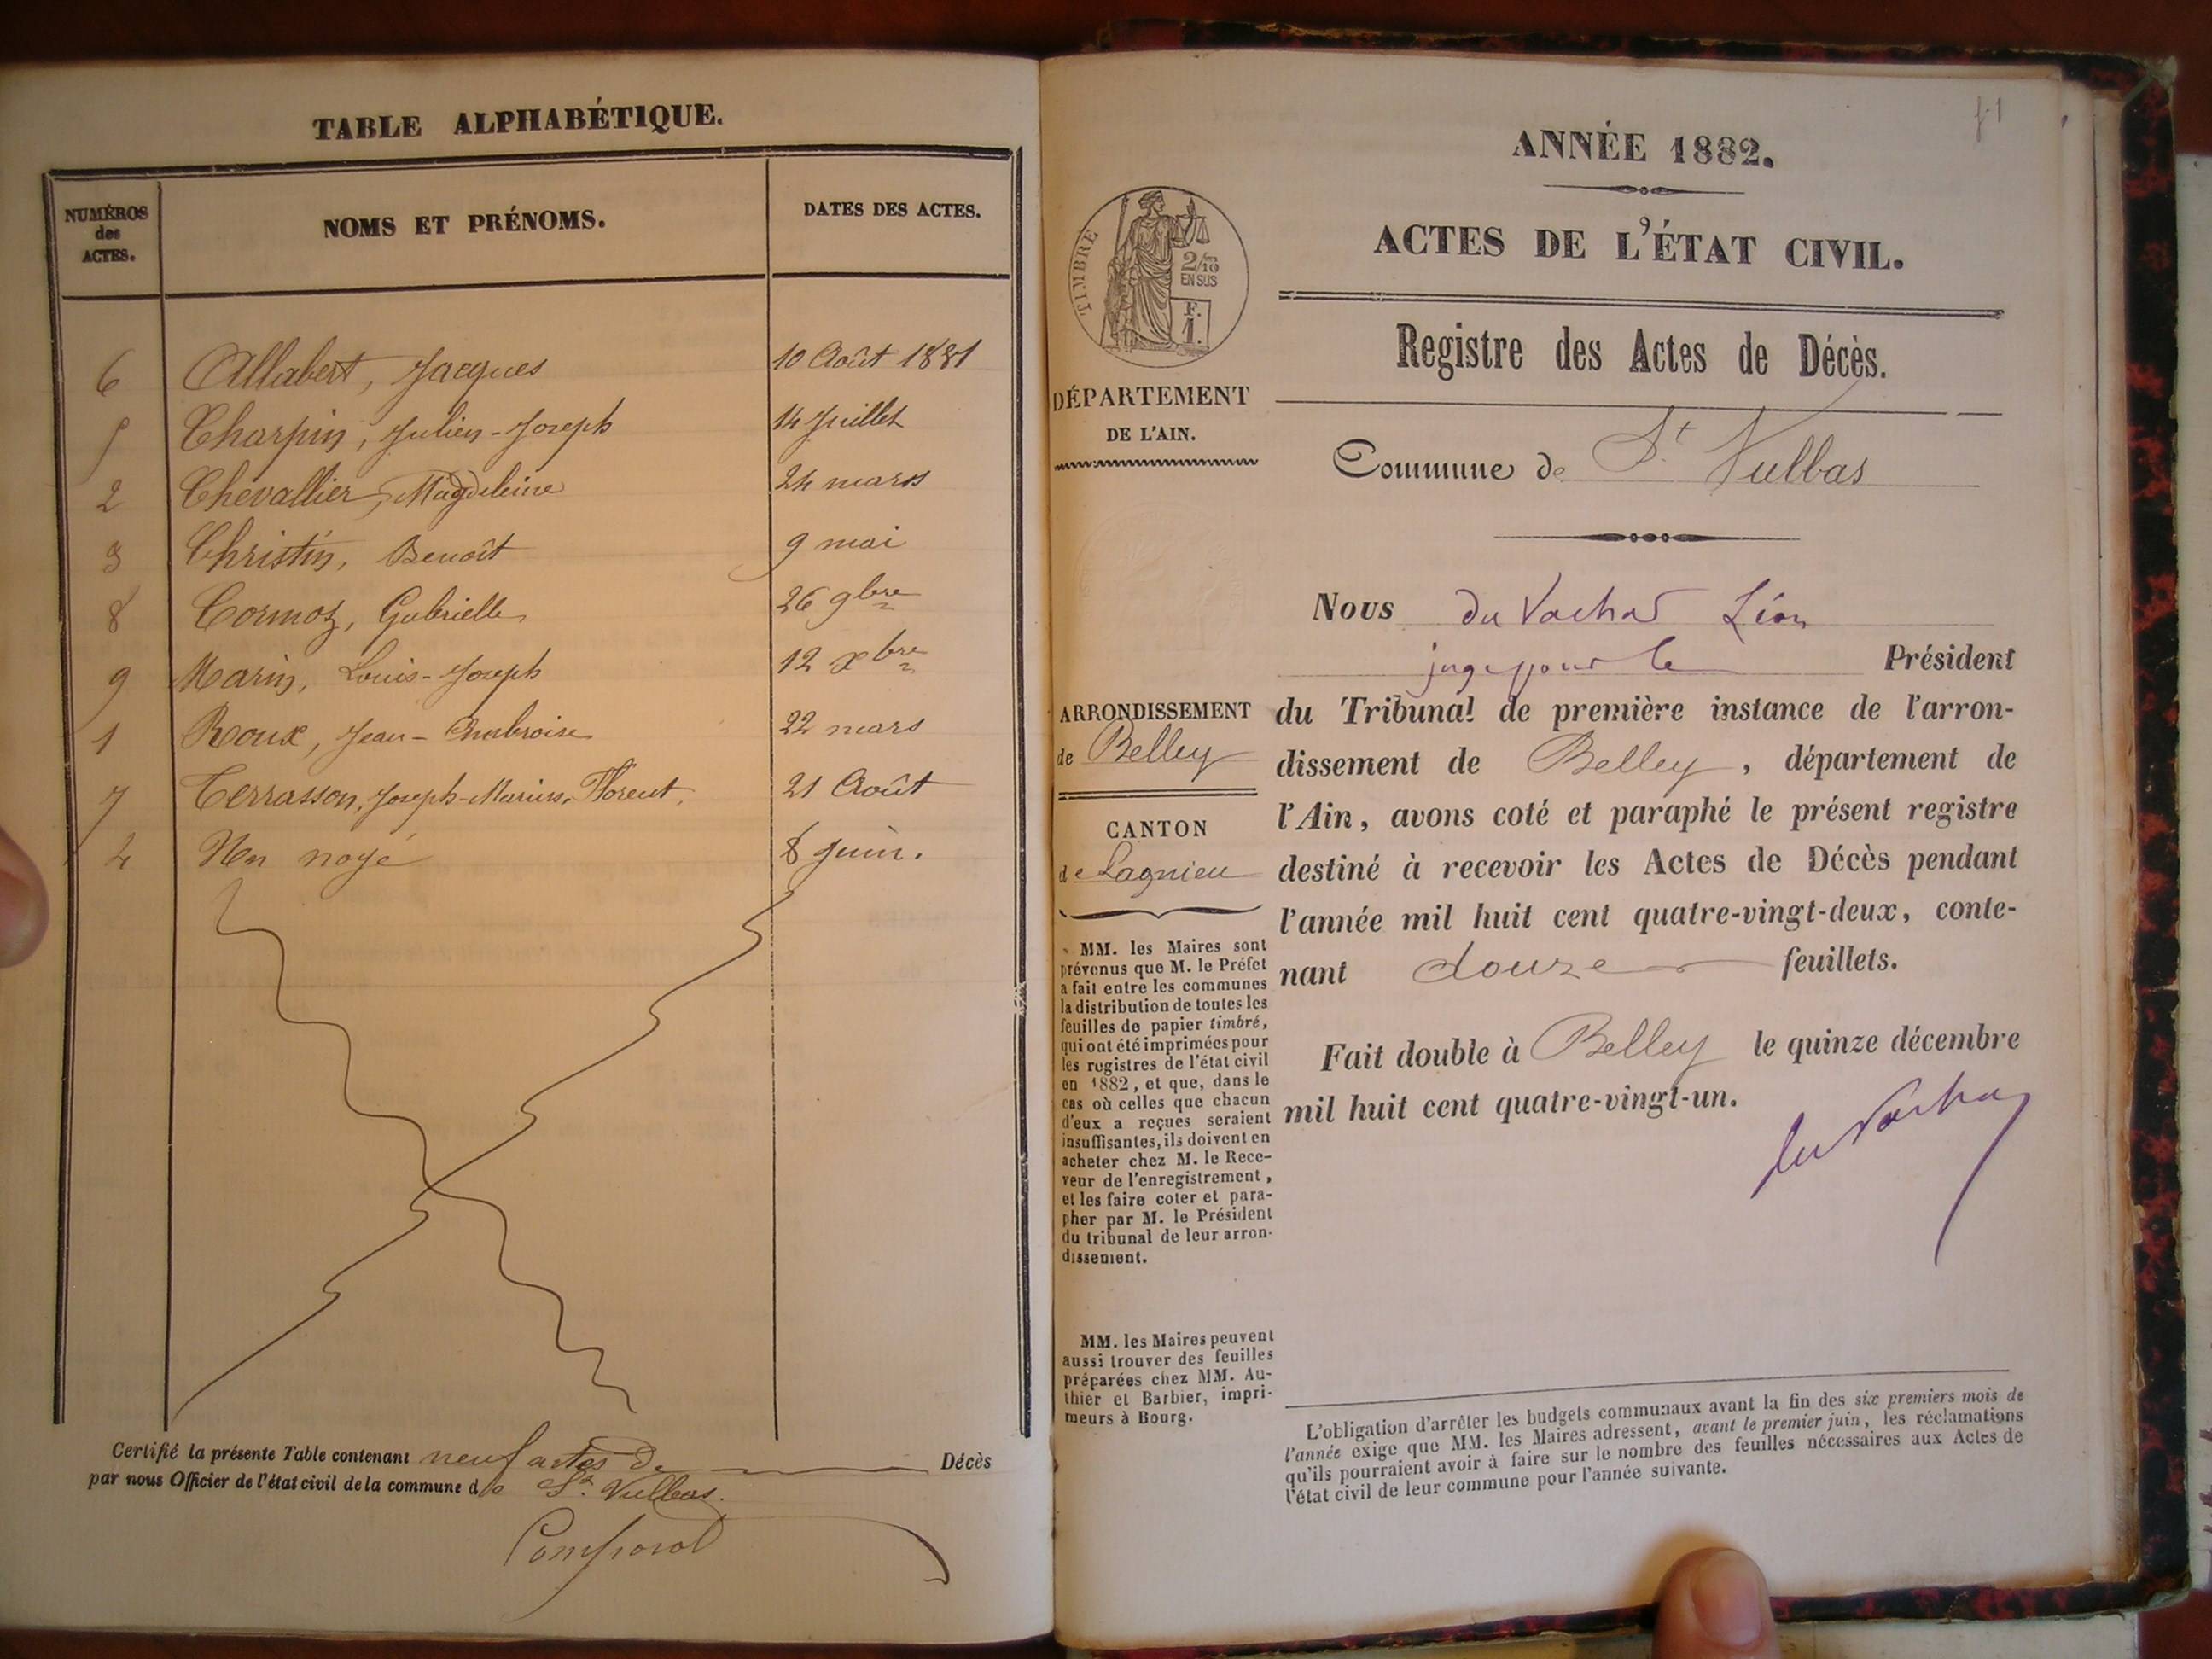 TABLE ALPHABÉTIQUE.
NUMÉROS des ACTES.
NOMS ET PRÉNOMS.
DATES DES ACTES.
6 Allabert, Jacques 10 Août 1881
5 Charpin, Julien-Joseph 14 Juillet
2 Chevallier, Magdeleine 24 mars
3 Christin, Benoît 9 mai
8 Cormoz, Gabrielle 26 9bre
9 Marin, Louis-Joseph 12 xbre
1 Roux, Jean-Ambroise 22 mars
7 Terrasson, Joseph-Marius-Florent. 21 Août
4 Un noyé 8 Juin.
Certifié la présente Table contenant neuf actes de Décès
par nous Officier de l'état civil de la commune de St. Vulbas.
f 1
ANNÉE 1882.
ACTES DE L'ÉTAT CIVIL.
TIMBRE
2/10
EN SUS
F.
1.
Registre des Actes de Décès.
DÉPARTEMENT
DE L'AIN.
Commune de St Vulbas
Nous du Vachat Léon
juge pour le Président
du Tribunal de première instance de l'arron-
dissement de Belley, département de
l'Ain, avons coté et paraphé le présent registre
destiné à recevoir les Actes de Décès pendant
l'année mil huit cent quatre-vingt-deux, conte-
nant douze feuillets.
Fait double à Belley le quinze décembre
mil huit cent quatre-vingt-un.
du Vachat
ARRONDISSEMENT
de Belley
CANTON
de Lagnieu
MM. les Maires sont
prévenus que M. le Préfet
a fait entre les communes
la distribution de toutes les
feuilles de papier timbré,
qui ont été imprimées pour
les registres de l'état civil
en 1882, et que, dans le
cas où celles que chacun
d'eux a reçues seraient
insuffisantes, ils doivent en
acheter chez M. le Rece-
veur de l'enregistrement,
et les faire coter et para-
pher par M. le Président
du tribunal de leur arron-
dissement.
MM. les Maires peuvent
aussi trouver des feuilles
préparées chez MM. Au-
thier et Barbier, impri-
meurs à Bourg.
L'obligation d'arrêter les budgets communaux avant la fin des six premiers mois de
l'année exige que MM. les Maires adressent, avant le premier juin, les réclamations
qu'ils pourraient avoir à faire sur le nombre des feuilles nécessaires aux Actes de
l'état civil de leur commune pour l'année suivante.